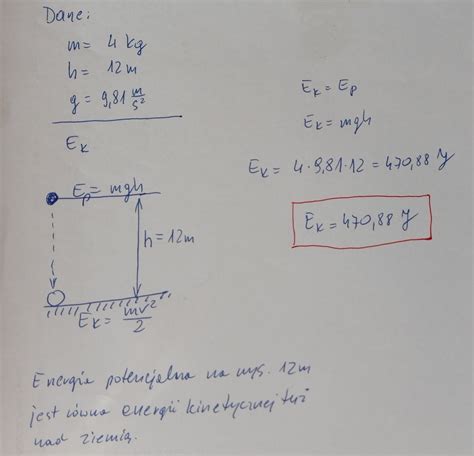 Dane:
m = 4 kg
h = 12m
g = 9,81 m/s²
Ek
Ek = Ep
Ek = mgh
Ek = 4 · 9,81 · 12 = 470,88 J
Ek = 470,88 J
Ep = mgh
h = 12m
Ek = mv²/2
Energia potencjalna na wys. 12m
jest równa energii kinetycznej tuż
nad ziemią.